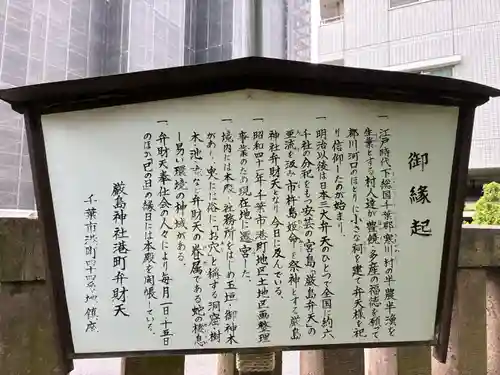 御縁起
一、江戸時代下総国千葉郡寒川村の半農半漁を
生業とする村人達が豊饒・多産の福徳を願って
都川河口のほとりに小さな祠を建て弁天様を祀
り信仰したのが始まり。
一、明治以後は日本三大弁天のひとつで全国に約六
千社の分祀をもつ安芸の宮島「厳島弁天」の
亜流を汲み市杵島姫命を祭神とする厳島
神社弁財天となり今日に及んでいる。
一、昭和四十二年千葉市港町地区土地区画整理
事業のため現在地に遷宮した。
一、境内には本殿、社務所をはじめ玉垣、御神木
があり、東に俗に「お穴」と称する洞窟、樹
木、池など弁財天の眷属である蛇の棲息
し易い環境の神域がある。
一、弁財天奉仕会の人々により毎月一日十五日
のほか「巳の日」の縁日には本殿を開帳している。
厳島神社港町弁財天
千葉市港町四十四番地鎮座